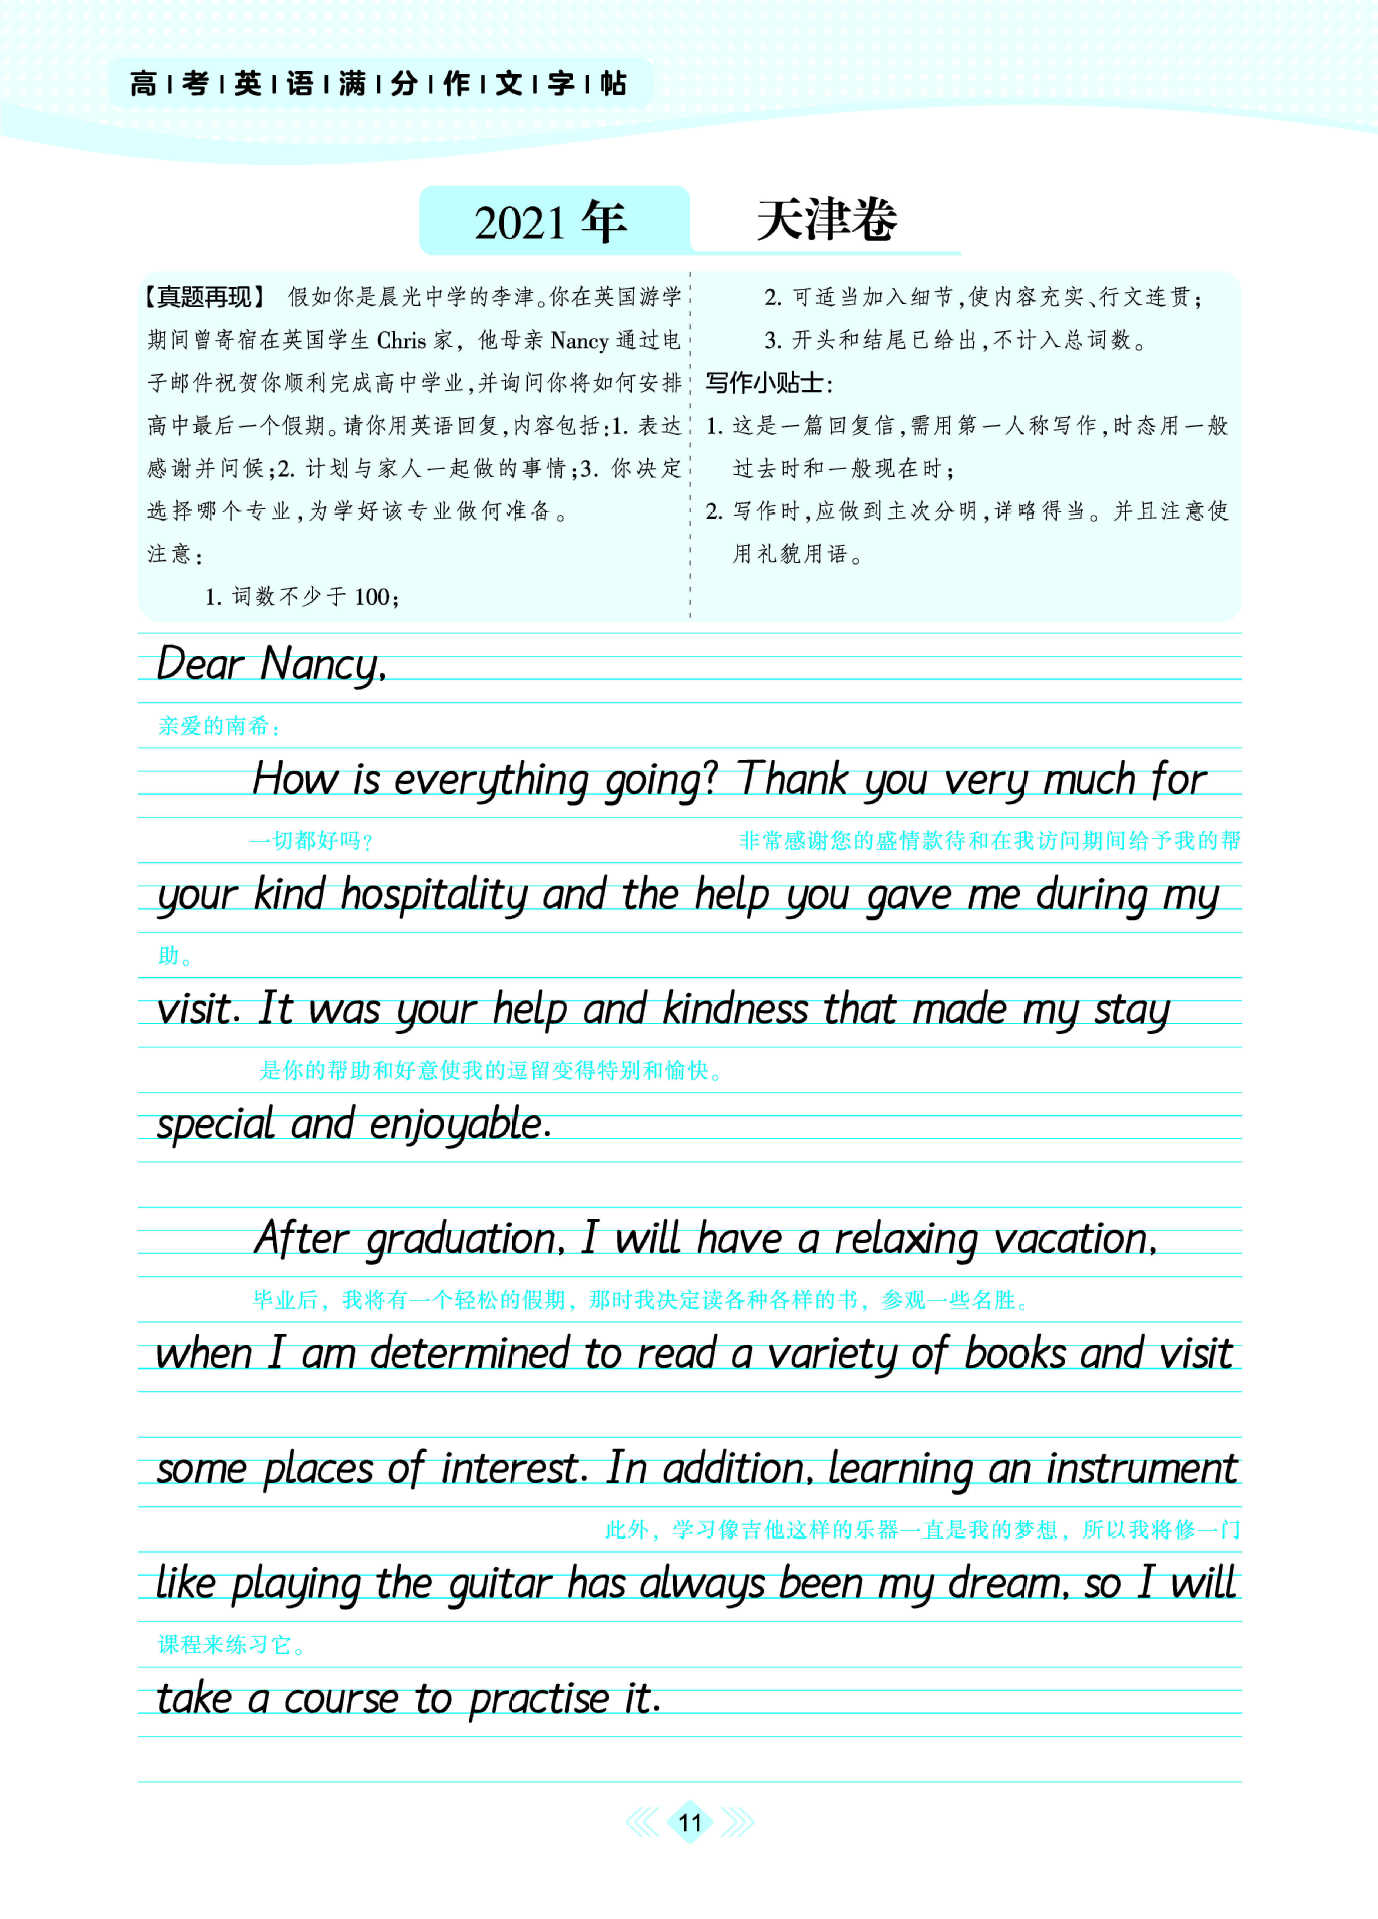 高考英语满分作文字帖
2021 年 天津卷
【真题再现】 假如你是晨光中学的李津。你在英国游学
期间曾寄宿在英国学生 Chris 家，他母亲 Nancy 通过电
子邮件祝贺你顺利完成高中学业,并询问你将如何安排
高中最后一个假期。请你用英语回复,内容包括:1. 表达
感谢并问候;2. 计划与家人一起做的事情;3. 你决定
选择哪个专业,为学好该专业做何准备。
注意:
1. 词数不少于 100;
2. 可适当加入细节,使内容充实、行文连贯;
3. 开头和结尾已给出,不计入总词数。
写作小贴士:
1. 这是一篇回复信,需用第一人称写作,时态用一般
过去时和一般现在时;
2. 写作时,应做到主次分明,详略得当。并且注意使
用礼貌用语。
Dear Nancy,
亲爱的南希:
How is everything going? Thank you very much for
一切都好吗? 非常感谢您的盛情款待和在我访问期间给予我的帮
your kind hospitality and the help you gave me during my
助。
visit. It was your help and kindness that made my stay
是你的帮助和好意使我的逗留变得特别和愉快。
special and enjoyable.
After graduation, I will have a relaxing vacation,
毕业后，我将有一个轻松的假期，那时我决定读各种各样的书，参观一些名胜。
when I am determined to read a variety of books and visit
some places of interest. In addition, learning an instrument
此外，学习像吉他这样的乐器一直是我的梦想，所以我将修一门
like playing the guitar has always been my dream, so I will
课程来练习它。
take a course to practise it.
11